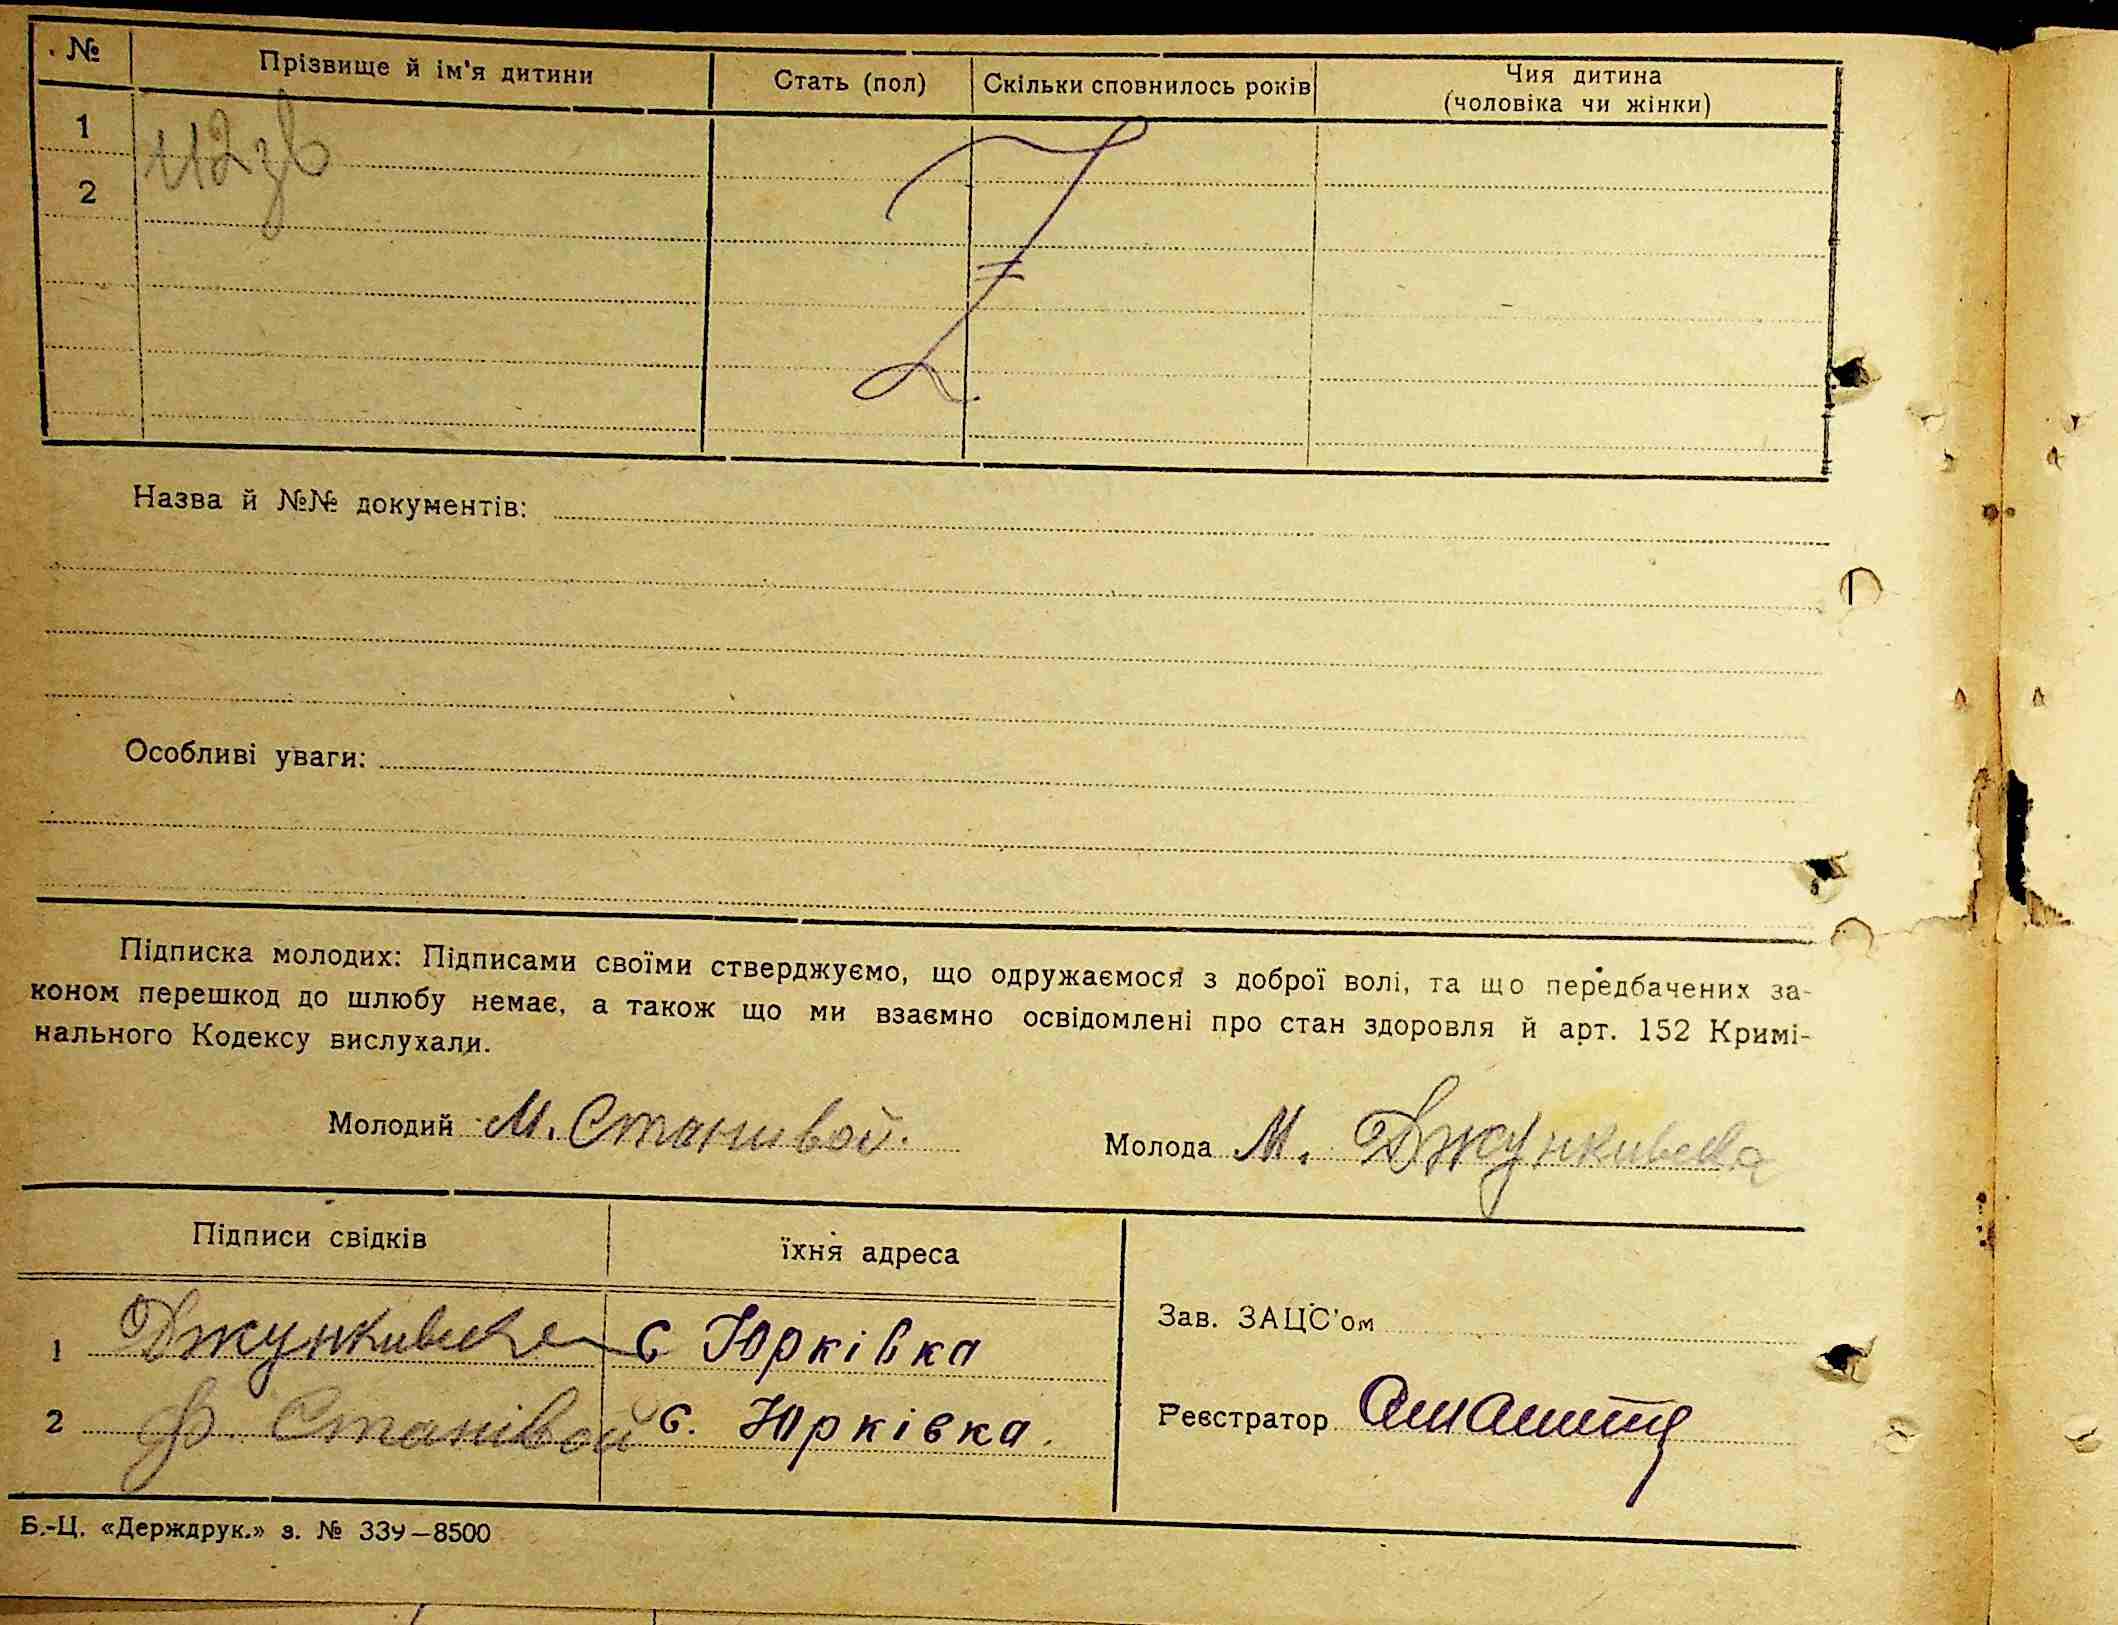 № Прізвище й ім'я дитини Стать (пол) Скільки сповнилось років Чия дитина
(чоловіка чи жінки)
1
2
112 зв
Назва й №№ документів:
Особливі уваги:
Підписка молодих: Підписами своїми стверджуємо, що одружаємося з доброї волі, та що передбачених за-
коном перешкод до шлюбу немає, а також що ми взаємно освідомлені про стан здоровля й арт. 152 Кримі-
нального Кодексу вислухали.
Молодий М. Станивой. Молода М. Джункивска
Підписи свідків їхня адреса
Зав. ЗАЦС'ом
1 с Юрківка
2 Ф. Станівой с. Юрківка.
Реєстратор
Б.-Ц. «Держдрук.» з. № 339—8500